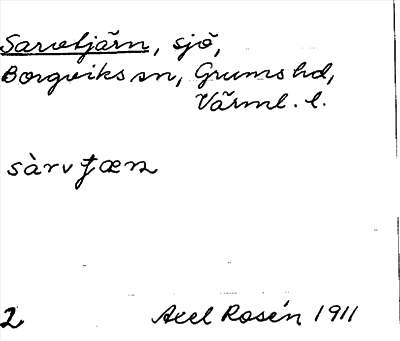 Sarvtjärn, sjö,
Borgviks sn, Grums hd,
Värml. l.
sàrvꞓæn
2
Axel Rosén 1911